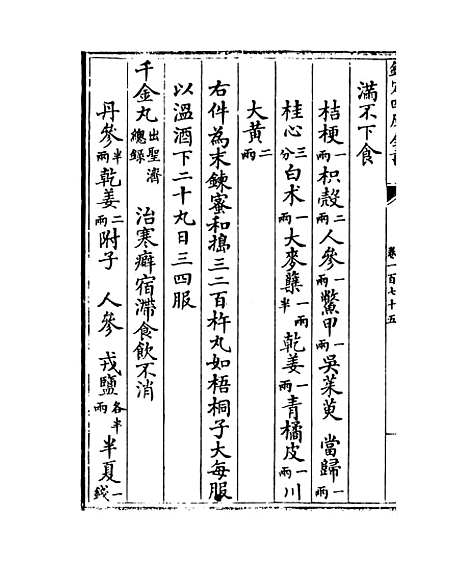 滿不下食
桔梗一兩枳殼二兩人參一兩鱉甲一兩吳茱萸　當歸一兩
桂心三分白术一兩大麥櫱一兩半乾姜一兩青橘皮一兩川
大黄二兩
右件為末鍊蜜和搗三二百杵丸如梧桐子大每服
以溫酒下二十丸日三四服
千金丸出聖濟總錄　治寒癖宿滯食飲不消
丹參半兩乾姜二兩附子　人參　戎鹽各半兩半夏一錢
卷一百七十五